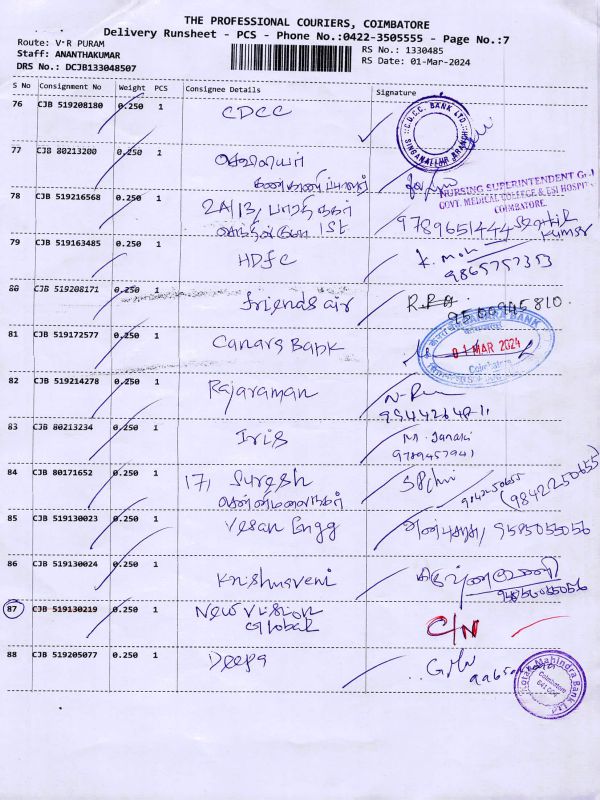 THE PROFESSIONAL COURIERS, COIMBATORE
Delivery Runsheet - PCS - Phone No.:0422-3505555 - Page No.:7
Route: V R PURAM
RS No.: 1330485
Staff: ANANTHAKUMAR
RS Date: 01-Mar-2024
DRS No.: DCJB133048507
S No Consignment No Weight PCS Consignee Details Signature
76 CJB 519208180 0.250 1 CDCC
C.D.C.C. BANK LTD. SINGANALLUR BRANCH
77 CJB 80213200 0.250 1
கண்காணிப்பாளர்
NURSING SUPERINTENDENT
GOVT. MEDICAL COLLEGE & ESI HOSPITAL
COIMBATORE.
78 CJB 519216568 0.250 1 2A/13, 9789651444
1St
79 CJB 519163485 0.250 1 HDFC K. moh
9865757353
80 CJB 519208171 0.250 1 friends air
9500945810.
81 CJB 519172577 0.250 1 Canara Bank
CANARA BANK
01 MAR 2024
Coimbatore
82 CJB 519214278 0.250 1 Rajaraman
83 CJB 80213234 0.250 1 Iris M. Janaki
9789457941
84 CJB 80171652 0.250 1 17, Suresh
9842250655 (9842250655)
85 CJB 519130023 0.250 1 Vesan Engg 9585055056
86 CJB 519130024 0.250 1 Krishnaveni
87 CJB 519130219 0.250 1 New Vision
Global C/N
88 CJB 519205077 0.250 1 Deepa
Kotak Mahindra Bank Ltd
Coimbatore